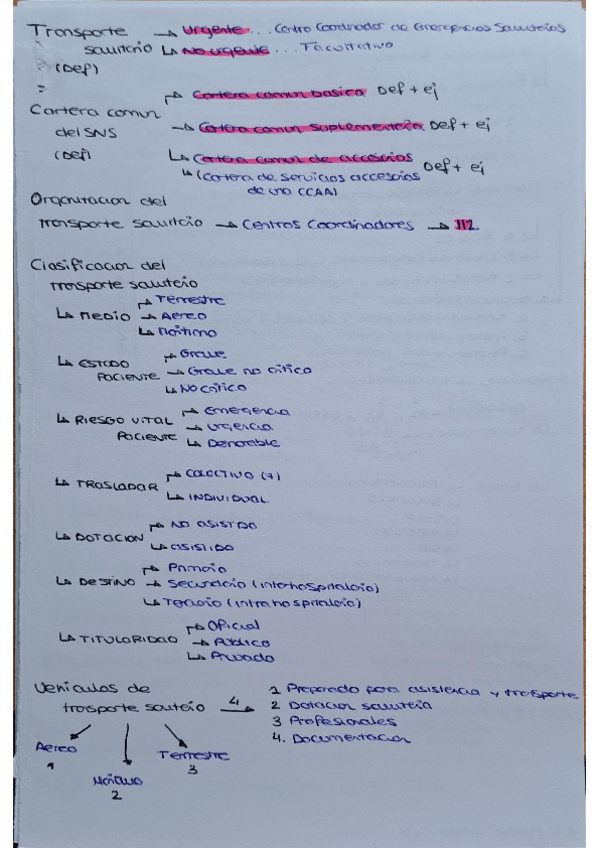 Transporte → Urgente... Centro Coordinador de Emergencias Sanitarias
sanitario ↳ No urgente... Facultativo
(Def)
Cartera comun basica Def + ej
Cartera comun
del SNS → Cartera comun suplementaria Def + ej
(Def)
↳ Cartera comun de accesorios Def + ej
↳ (cartera de servicios accesorios
de una CCAA)
Organitacion del
transporte sanitario → Centros Coordinadores → 112
Clasificacion del
transporte sanitario
Terrestre
↳ MEDIO → Aereo
↳ Maritimo
Grave
↳ ESTADO
PACIENTE → Grave no critico
↳ No critico
Emergencia
↳ RIESGO VITAL
PACIENTE → Urgencia
↳ Demorable
COLECTIVO (7)
↳ TRASLADAR
↳ INDIVIDUAL
NO ASISTIDO
↳ DOTACION
↳ ASISTIDO
Primario
↳ DESTINO → Secundario (interhospitalario)
↳ Terciario (intrahospitalario)
Oficial
↳ TITULARIDAD → Público
↳ Privado
Vehiculos de
transporte sanitario 4 →
1 Preparado para asistencia y transporte
2 Dotacion sanitaria
3 Profesionales
4. Documentacion
Aereo
1
Maritimo
2
Terrestre
3